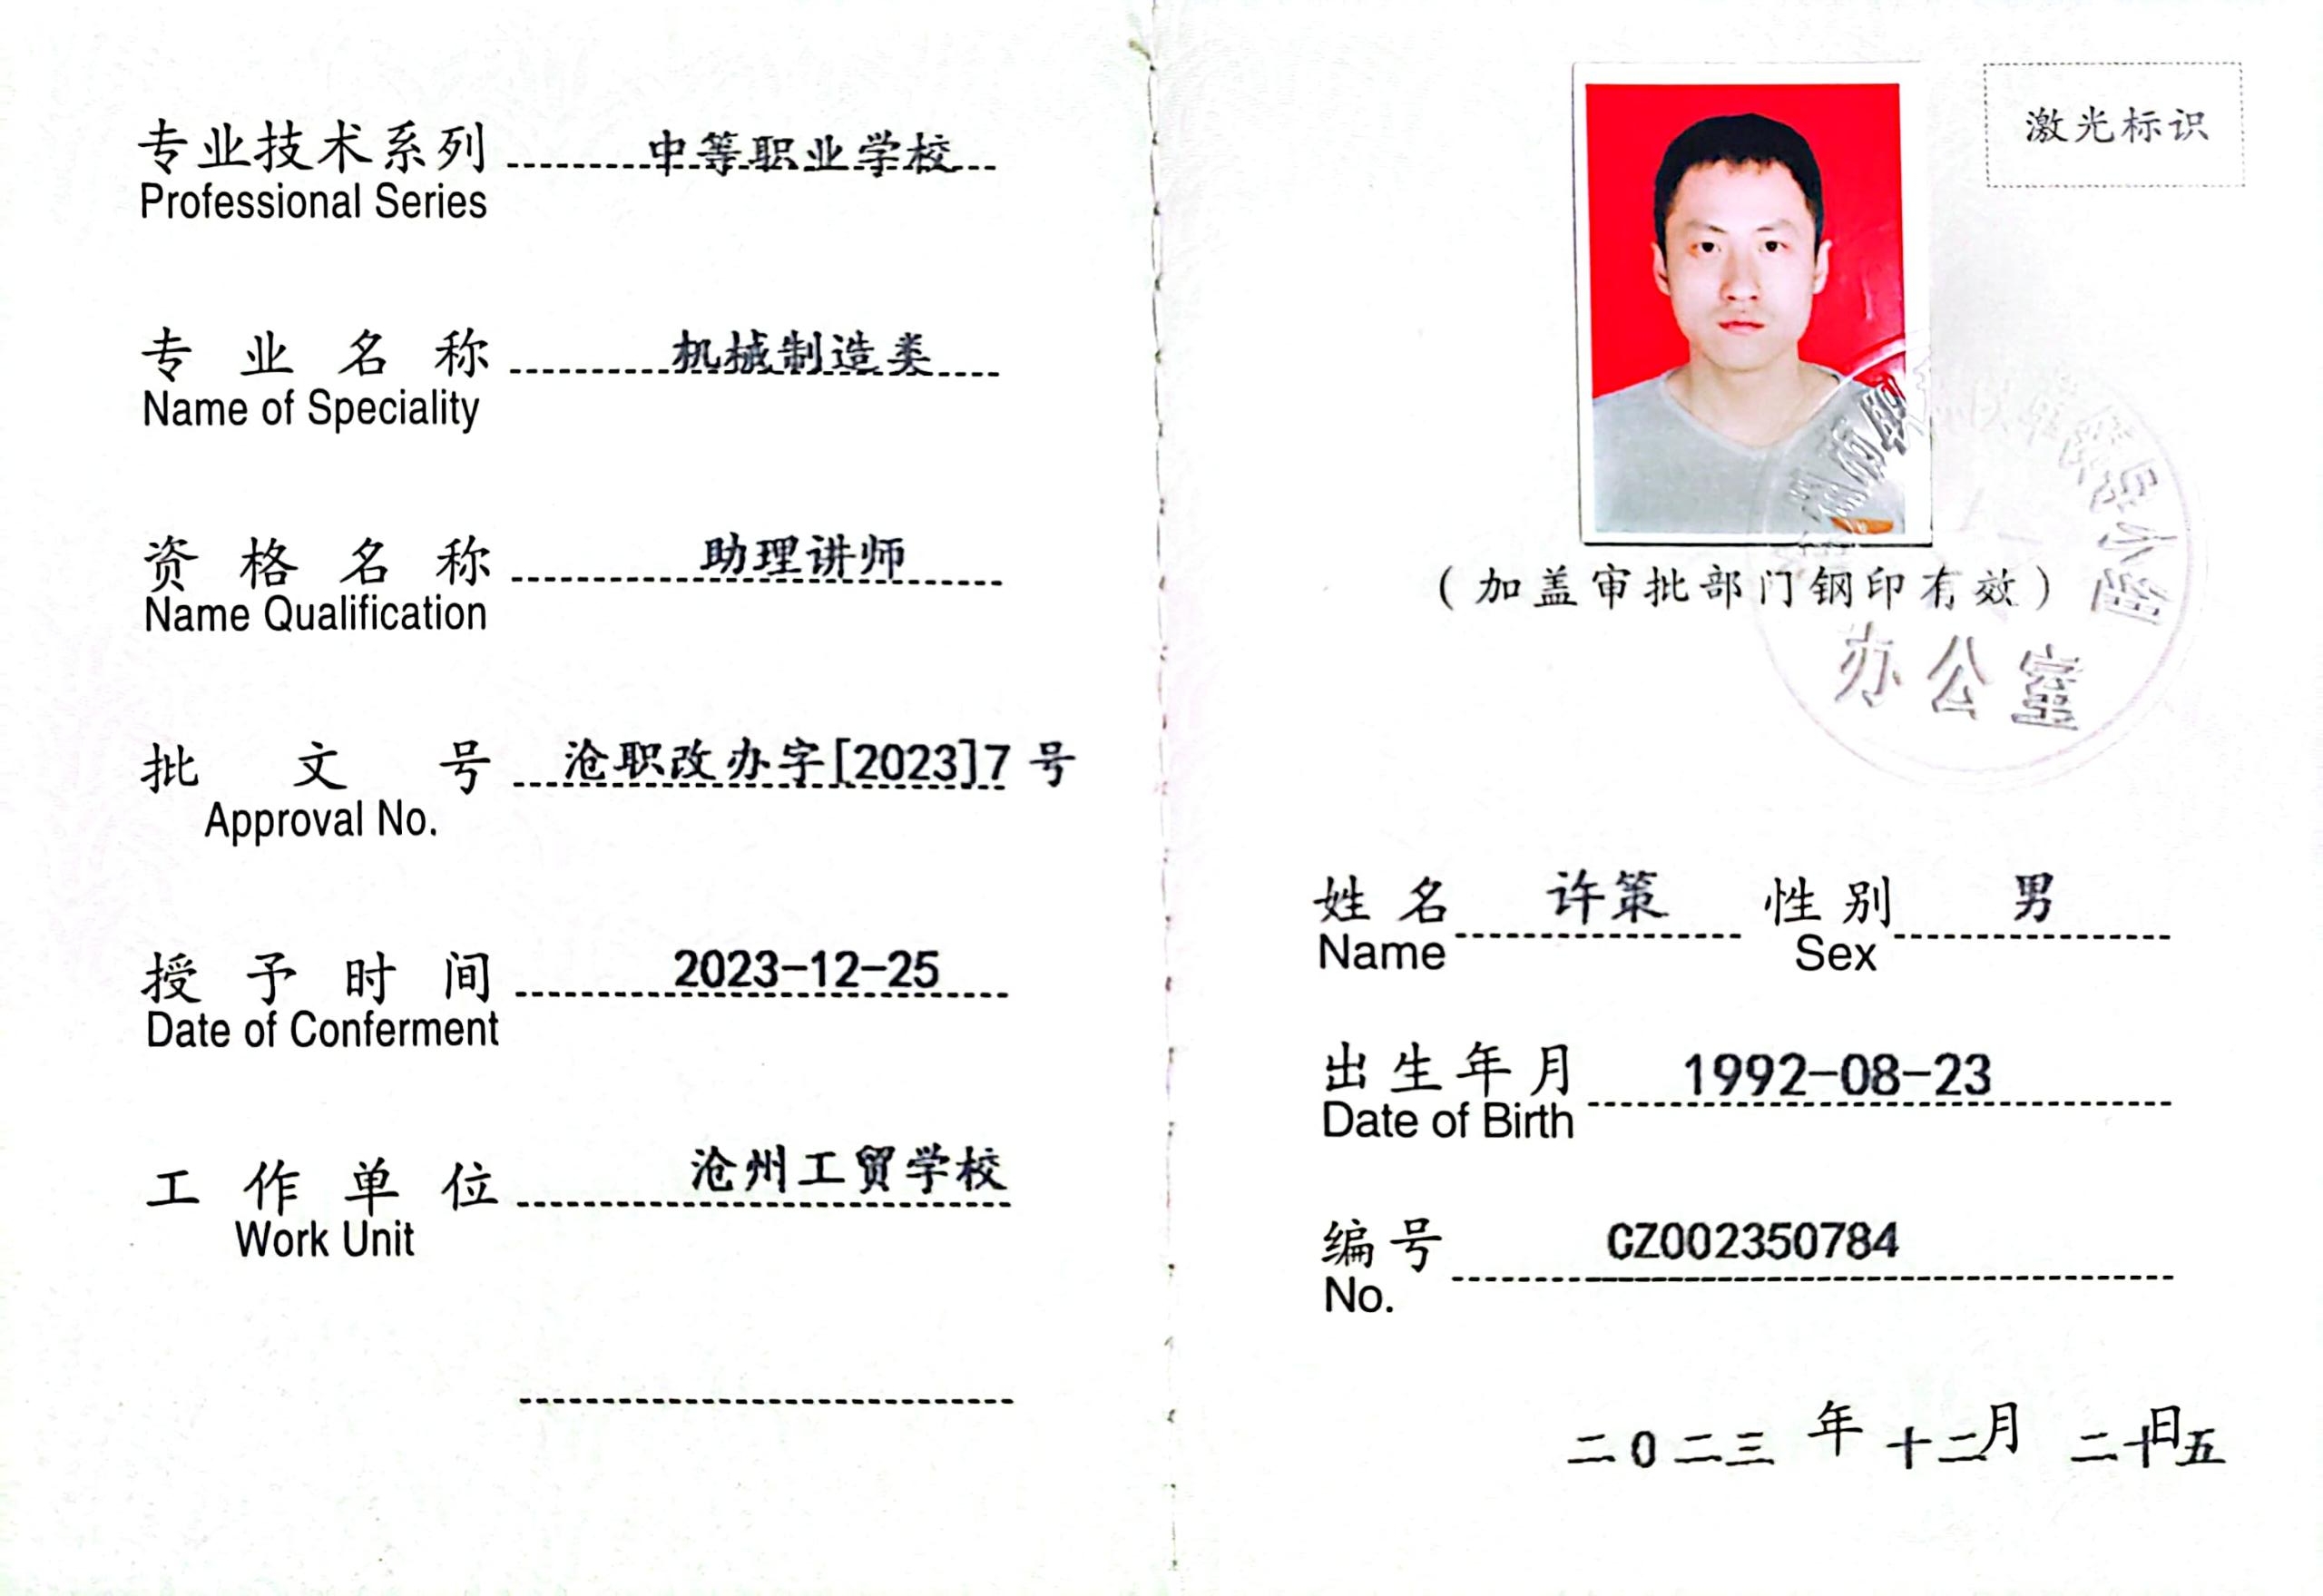 专业技术系列 中等职业学校
Professional Series
专业名称 机械制造类
Name of Speciality
资格名称 助理讲师
Name Qualification
批文号 沧职改办字[2023]7 号
Approval No.
授予时间 2023-12-25
Date of Conferment
工作单位 沧州工贸学校
Work Unit
激光标识
(加盖审批部门钢印有效)
领导小组
办公室
姓名 许策 性别 男
Name Sex
出生年月 1992-08-23
Date of Birth
编号 CZ002350784
No.
二0二三 年 十二月 二十五日